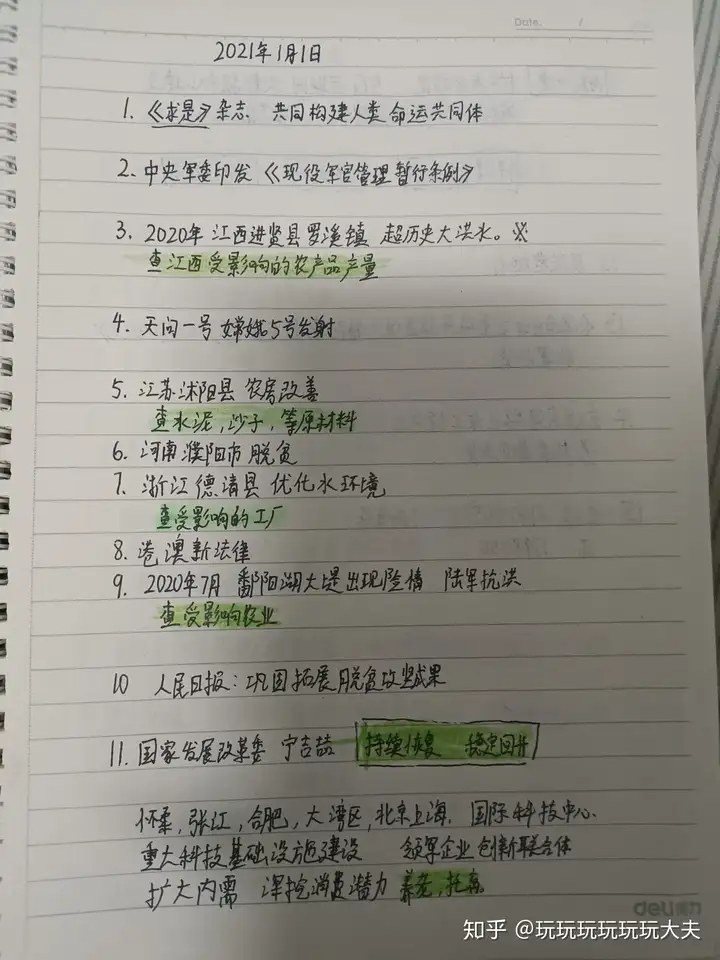 Date. /
2021年1月1日
1. 《求是》杂志 共同构建人类命运共同体
2. 中央军委印发《现役军官管理暂行条例》
3. 2020年 江西进贤县罗溪镇 超历史大洪水。※
查江西受影响的农产品产量
4. 天问一号 嫦娥5号发射
5. 江苏沭阳县 农房改善
查水泥,沙子,等原材料
6. 河南濮阳市 脱贫
7. 浙江德清县 优化水环境
查受影响的工厂
8. 港澳新法律
9. 2020年7月 鄱阳湖大堤出现险情 陆军抗洪
查受影响农业
10 人民日报:巩固拓展脱贫攻坚成果
11. 国家发展改革委 宁吉喆 持续恢复 稳定回升
怀柔,张江,合肥,大湾区,北京上海. 国际科技中心.
重大科技基础设施建设 领军企业创新联合体
扩大内需 深挖消费潜力 养老,托育
deli得力
知乎 @玩玩玩玩玩玩大夫